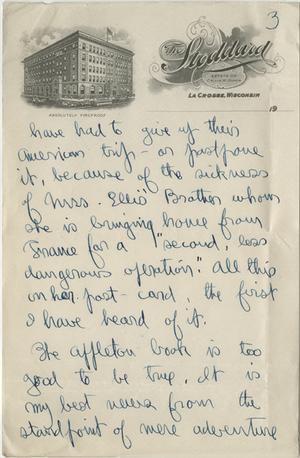 3
The Stoddard
LA CROSSE, WISCONSIN
19
ABSOLUTELY FIREPROOF
have had to give up their
American trip – or postpone
it, because of the sickness
of Mrs. Ellis' Brother whom
she is bringing home from
France for a "second, less
dangerous operation." All this
in her post-card, the first
I have heard of it.
The Appleton book is too
good to be true. It is
my best news from the
standpoint of mere adventure